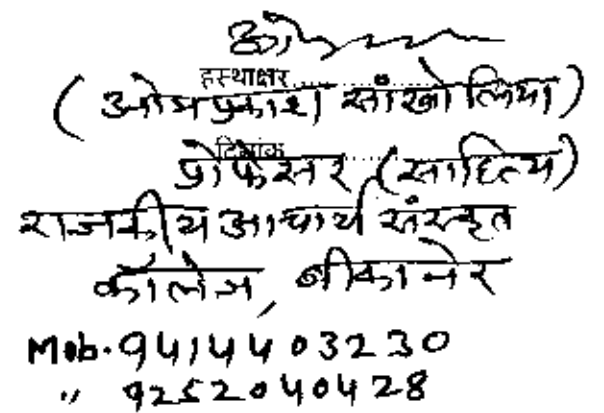 हस्थाक्षर ................
( ओमप्रकाश सांखोलिया )
दिनांक ................
प्रोफेसर (साहित्य)
राजकीय आचार्य संस्कृत
कॉलेज, बीकानेर
Mob. 9414403230
" 9252040428